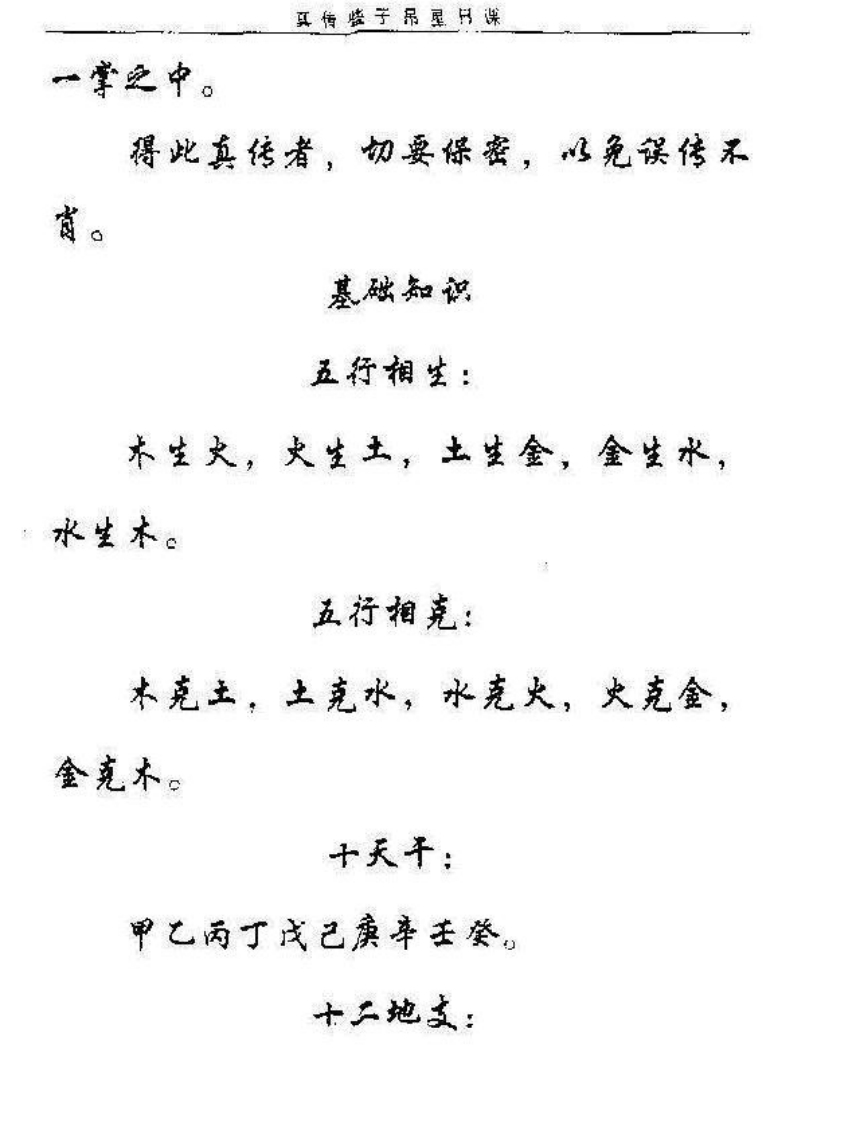 真传些子吊星日课
一掌之中。
得此真传者，切要保密，以免误传不
肖。
基础知识
五行相生：
木生火，火生土，土生金，金生水，
水生木。
五行相克：
木克土，土克水，水克火，火克金，
金克木。
十天干：
甲乙丙丁戊己庚辛壬癸。
十二地支：